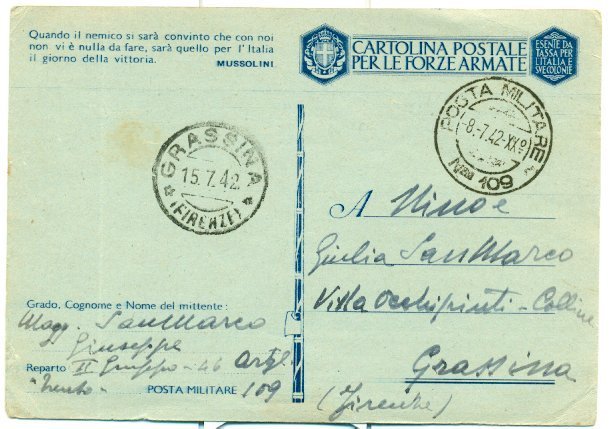 Quando il nemico si sarà convinto che con noi
non vi è nulla da fare, sarà quello per l'Italia
il giorno della vittoria.
MUSSOLINI
CARTOLINA POSTALE
PER LE FORZE ARMATE
ESENTE DA
TASSA PER
L'ITALIA E
SVE COLONIE
POSTA MILITARE
-8.-7.42-XX
109
GRASSINA
15.7.42
(FIRENZE)
A Mino e
Giulia SanMarco
Villa Occhipinti - Colline
Grassina
(Firenze)
Grado, Cognome e Nome del mittente:
Magg. SanMarco
Giuseppe
Reparto II Gruppo - 46 Artgl.
"Trento" POSTA MILITARE 109